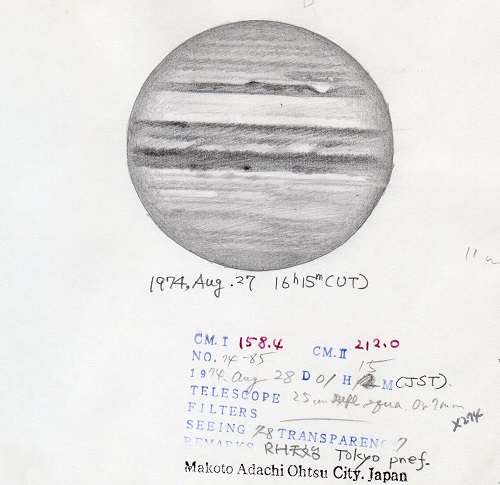 1974, Aug. 27 16h15m (UT)
CM. I 158.4 CM. II 212.0
NO. 74-85
1974. Aug 28 D 01 H 15 M (JST).
TELESCOPE 25cm equa. Or 7mm
×274
FILTERS
SEEING TRANSPARENCY
REMARKS Tokyo pref.
Makoto Adachi Ohtsu City. Japan